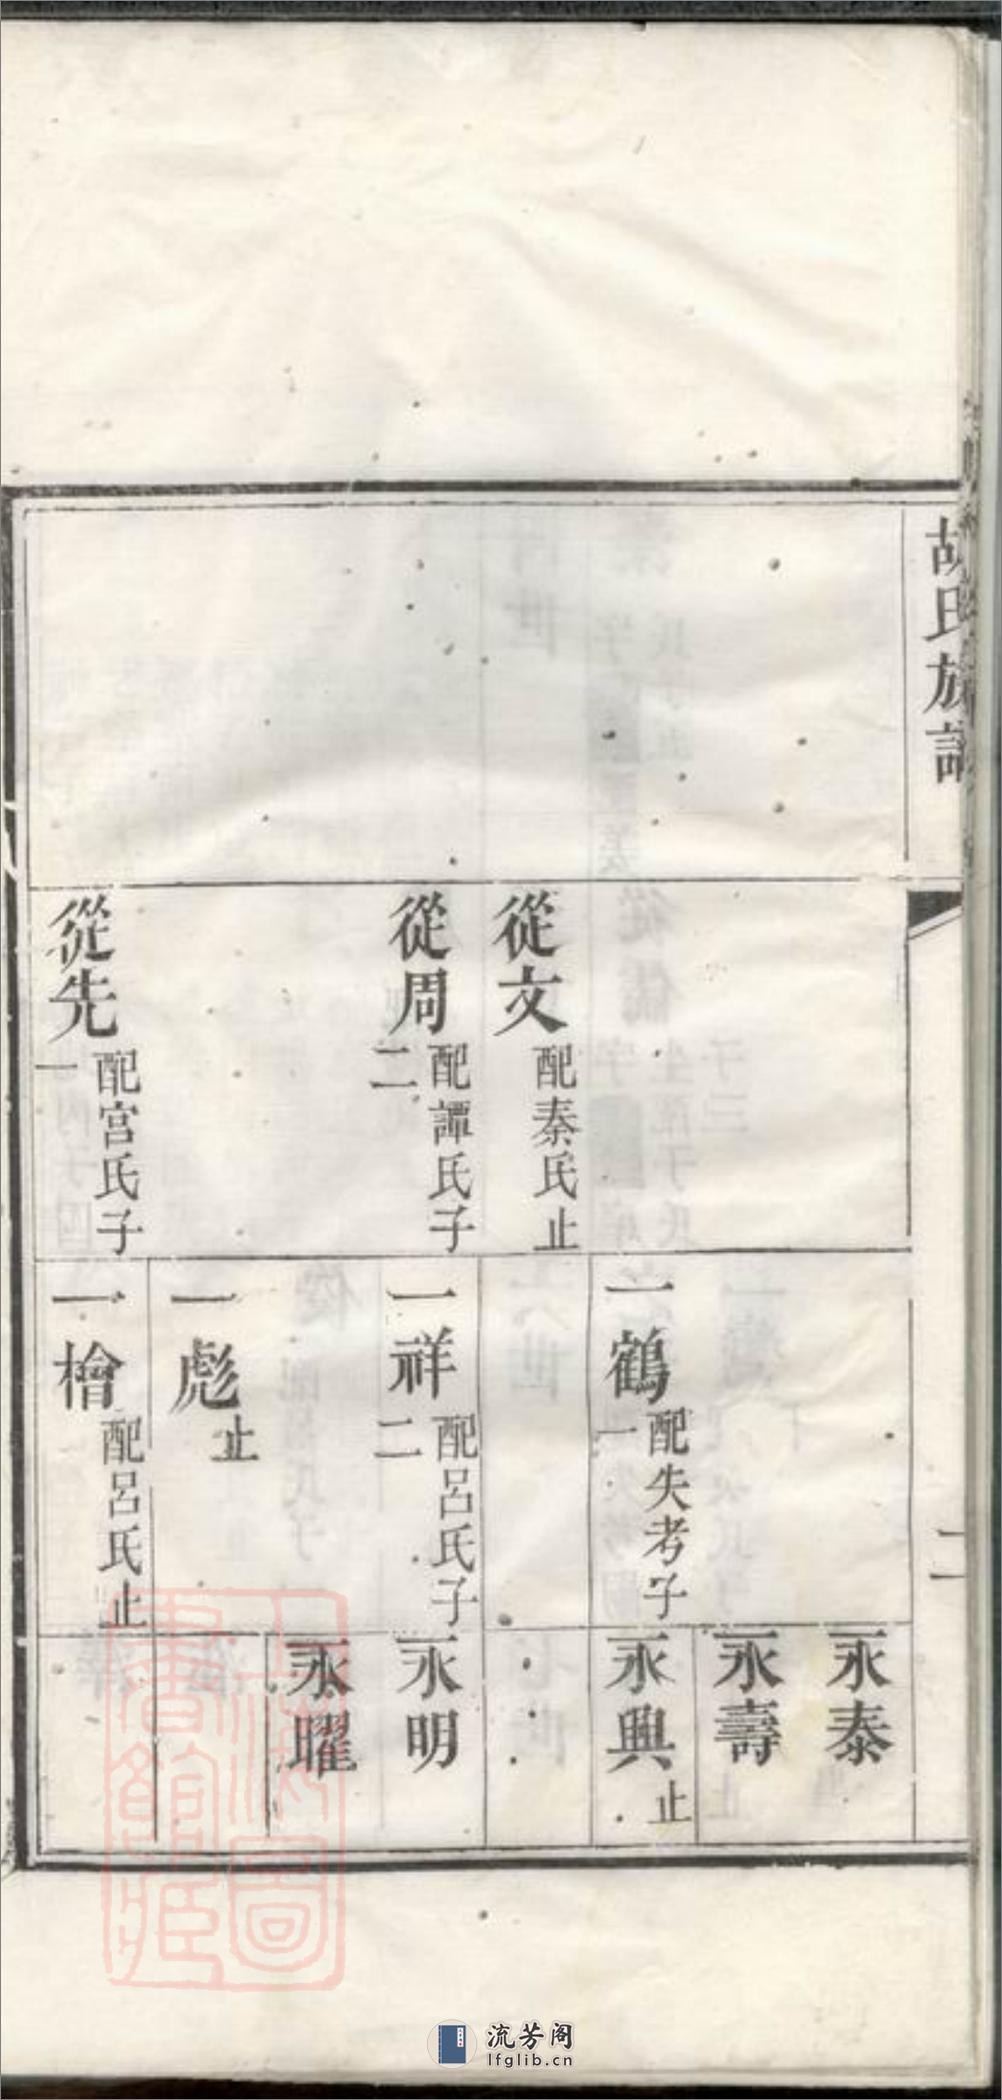 胡氏族譜
二
從文 配秦氏止
從周 配譚氏子二
從先 配宫氏子一
一鶴 配失考子一
一祥 配呂氏子二
一彪 止
一檜 配呂氏止
永泰
永壽
永興 止
永明
永曜
上海圖書館藏
流芳阁
lfglib.cn